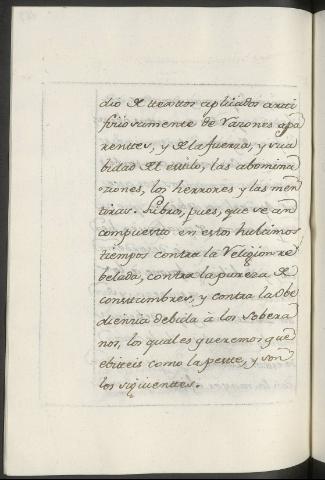 dio de ttexttos aplicados artti
fiziosamente de Razones apa
renttes, y de la fuerza, y sua
bidad del estilo, las abomina
ziones, los herrores y las men
tiras. Libros, pues, que se an
compuesto en estos hultimos
tiempos contra la Religion re
belada, contra la pureza de
constumbres, y contra la Obe
diencia debida à los sobera
nos, los quales queremos que
ebiteis como la peste, y son
los siguienttes.